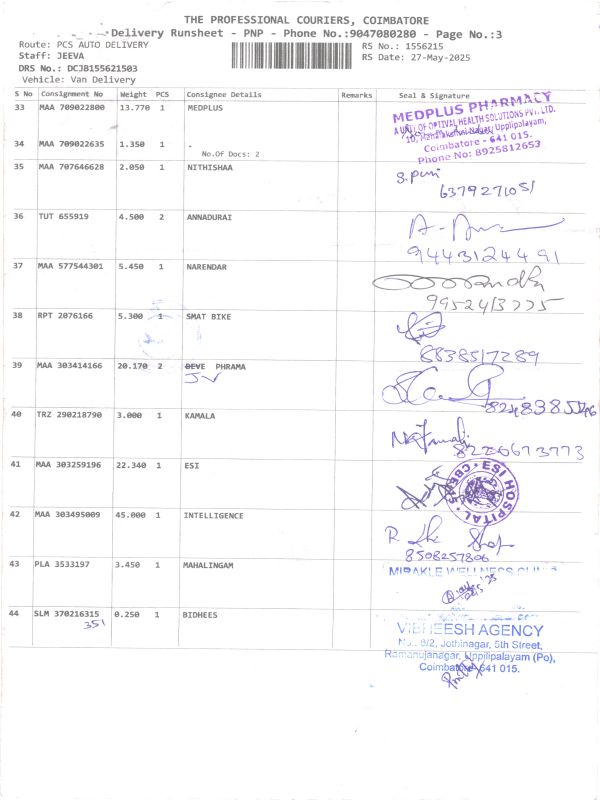 THE PROFESSIONAL COURIERS, COIMBATORE
Delivery Runsheet - PNP - Phone No.:9047080280 - Page No.:3
Route: PCS AUTO DELIVERY RS No.: 1556215
Staff: JEEVA RS Date: 27-May-2025
DRS No.: DCJB155621503
Vehicle: Van Delivery
S No Consignment No Weight PCS Consignee Details Remarks Seal & Signature
33 MAA 709022800 13.770 1 MEDPLUS
MEDPLUS PHARMACY
A UNIT OF OPTIVAL HEALTH SOLUTIONS PVT. LTD.
10, Mahalakshmi Nagar, Uppilipalayam,
Coimbatore - 641 015.
Phone No: 8925812653
34 MAA 709022635 1.350 1 .
No.Of Docs: 2
35 MAA 707646628 2.050 1 NITHISHAA
6379271051
36 TUT 655919 4.500 2 ANNADURAI
9443124491
37 MAA 577544301 5.450 1 NARENDAR
38 RPT 2076166 5.300 1 SMAT BIKE
8838517289
39 MAA 303414166 20.170 2 DEVE PHRAMA
JV
40 TRZ 290218790 3.000 1 KAMALA
8220673773
41 MAA 303259196 22.340 1 ESI
ESI HOSPITAL
42 MAA 303495009 45.000 1 INTELLIGENCE
8508257806
43 PLA 3533197 3.450 1 MAHALINGAM
MIRAKLE WELLNESS CLINIC
44 SLM 370216315 0.250 1 BIDHEES
351
VIBHEESH AGENCY
No.. 8/2, Jothinagar, 5th Street,
Ramanujanagar, Uppilipalayam (Po),
Coimbatore 641 015.